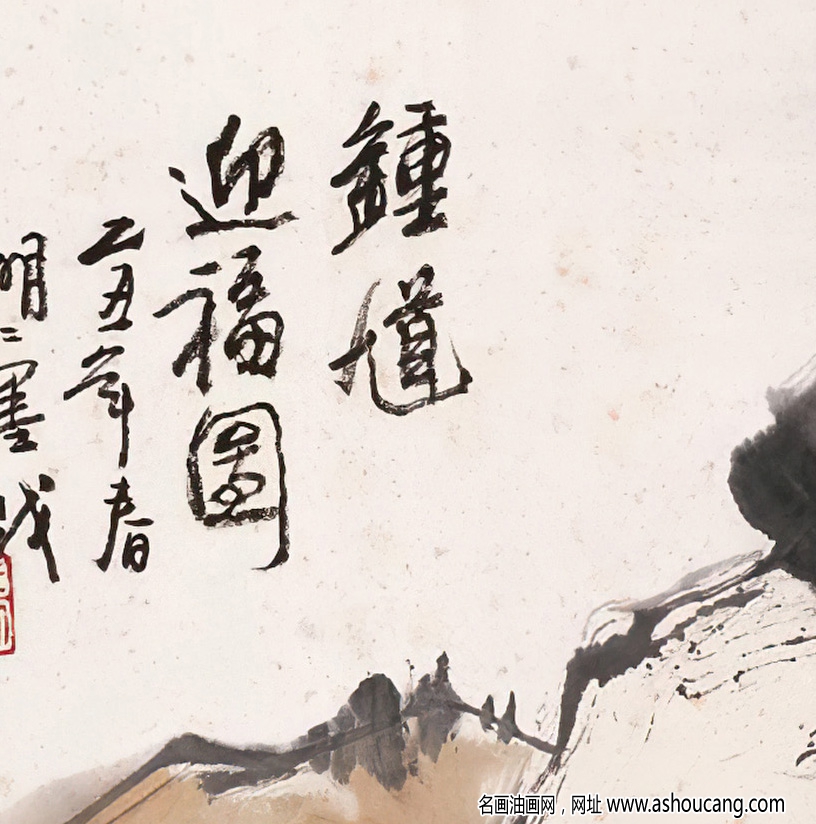 鍾馗
迎福圖
乙丑年春
明明墨戏
名画油画网，网址 www.ashoucang.com